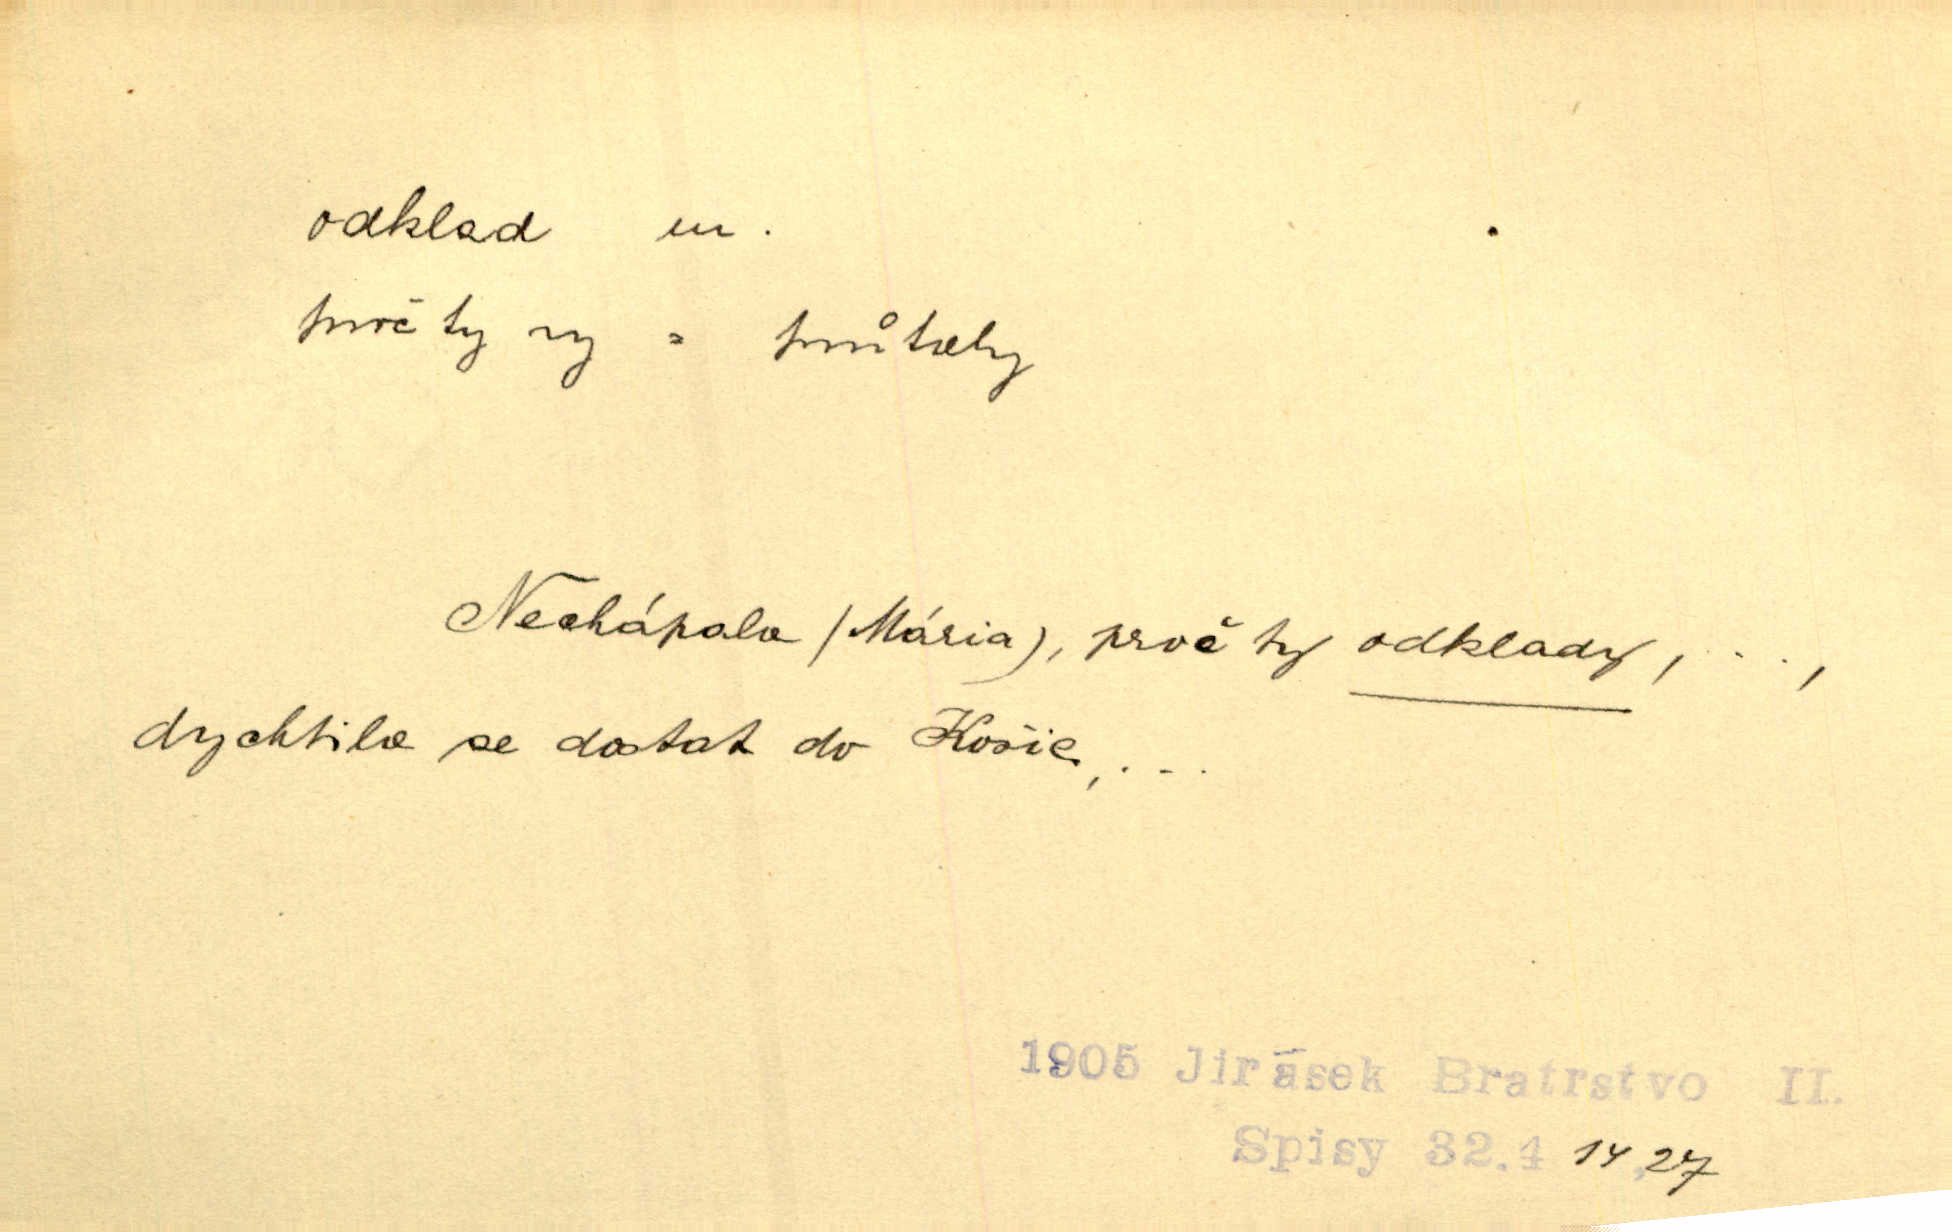 odklad m.
proč ty ny = průtahy
Nechápala (Mária), proč ty odklady, ...,
dychtila se dostat do Košic, ...
1905 Jirásek Bratrstvo II.
Spisy 32.1 14,27